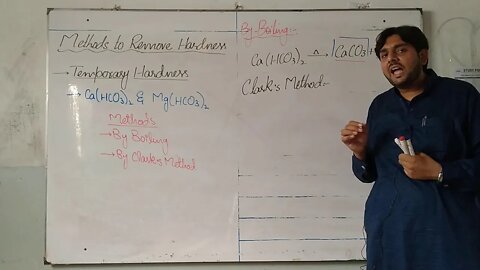 Methods to Remove Hardness
→ Temporary Hardness
→ Ca(HCO₃)₂ & Mg(HCO₃)₂
Methods
→ By Boiling
→ By Clark's Method
By Boiling:-
Ca(HCO₃)₂ →^Δ CaCO₃
Clark's Method:-